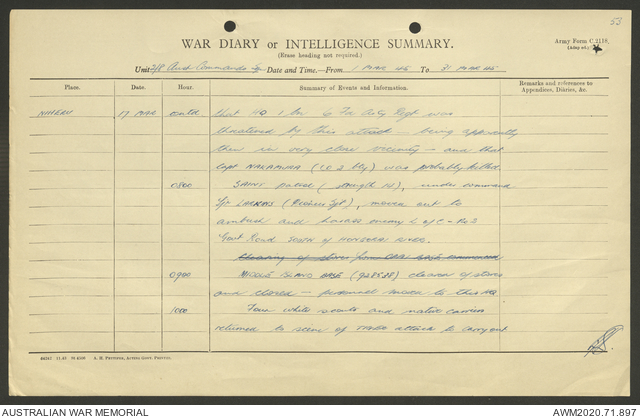 53
WAR DIARY or INTELLIGENCE SUMMARY.
(Erase heading not required.)
Army Form C.2118.
Unit 2/8 Aust Commando Date and Time—From 1 MAR 45 To 31 MAR 45
Place. Date. Hour. Summary of Events and Information. Remarks and references to Appendices, Diaries, &c.
NIHERU 17 MAR contd that HQ 1 Bn 6 Fd Arty Regt was
threatened by this attack – being apparently
then in very close vicinity – and that
Capt NAKAMURA (CO 2 Bty) was probably killed.
0800 SAINT patrol (strength 14), under command
Tpr (Pioneer Sgt), moves out to
ambush and harass enemy L of C – No 2
Govt Road SOUTH of HONGORAI RIVER.
Clearing of stores from BASE commenced
0900 MIDDLE ISLAND BASE (928588) cleared of stores
and closed – personnel move to this HQ
1000 Four white scouts and native carriers
returned to scene of attack to carry out
44361 11.43 A. H. PETTIFER, ACTING GOVT. PRINTER.
AUSTRALIAN WAR MEMORIAL
AWM2020.71.897